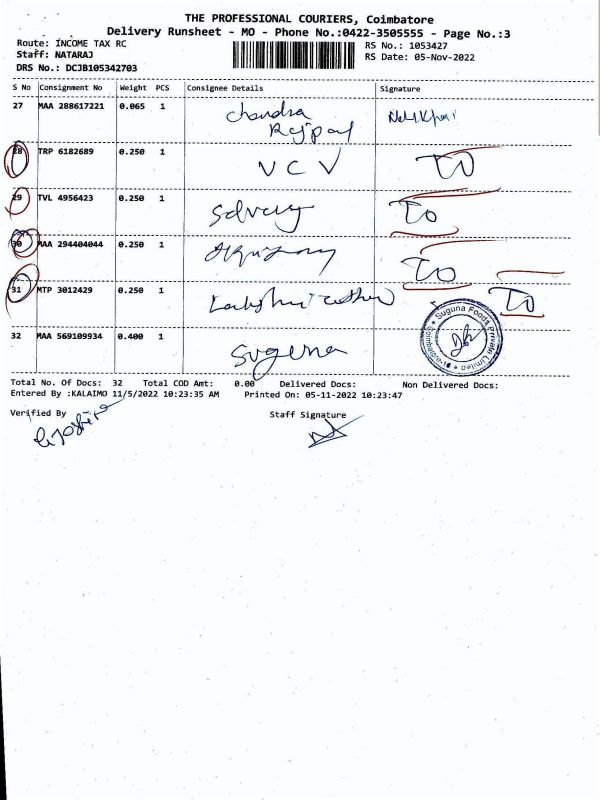 THE PROFESSIONAL COURIERS, Coimbatore
Delivery Runsheet - MO - Phone No.:0422-3505555 - Page No.:3
Route: INCOME TAX RC
RS No.: 1053427
Staff: NATARAJ
RS Date: 05-Nov-2022
DRS No.: DCJB105342703
S No Consignment No Weight PCS Consignee Details Signature
27 MAA 288617221 0.065 1 Chandra
28 TRP 6182689 0.250 1 V C V TO
29 TVL 4956423 0.250 1 TO
30 MAA 294404044 0.250 1 TO
31 MTP 3012429 0.250 1 TO
32 MAA 569109934 0.400 1 Suguna
Suguna Foods Private Limited
Total No. Of Docs: 32 Total COD Amt: 0.00 Delivered Docs: Non Delivered Docs:
Entered By :KALAIMO 11/5/2022 10:23:35 AM Printed On: 05-11-2022 10:23:47
Verified By Staff Signature